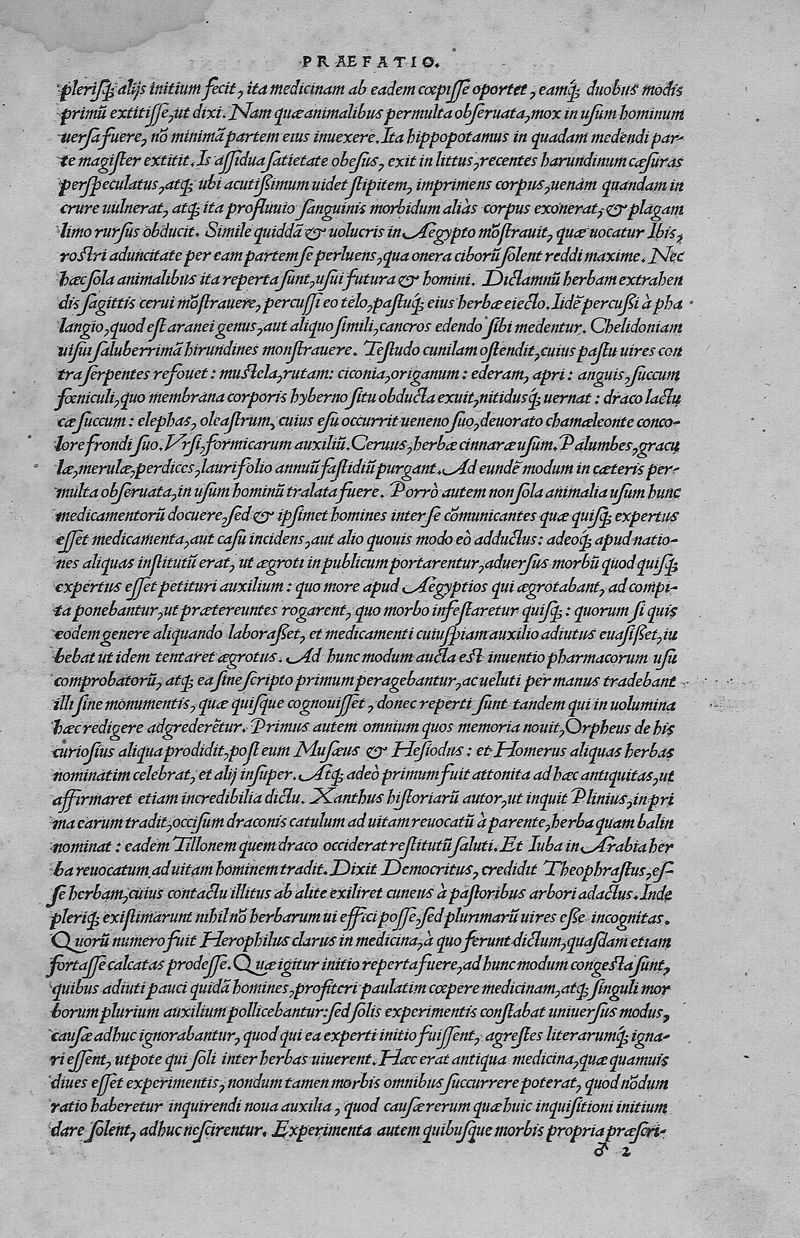 PRAEFATIO.
plerisq; alijs initium fecit, ita medicinam ab eadem cœpisse oportet, eamq; duobus modis
primū extitisse, ut dixi. Nam quæ animalibus permulta obseruata, mox in usum hominum
uersa fuere, nō minimā partem eius inuexere. Ita hippopotamus in quadam medendi par-
te magister extitit. Is assidua satietate obesus, exit in littus, recentes harundinum cæsuras
perspeculatus, atq; ubi acutissimum uidet stipitem, imprimens corpus, uenam quandam in
crure uulnerat, atq; ita profluuio sanguinis morbidum aliàs corpus exonerat, & plagam
limo rursus obducit. Simile quiddā & uolucris in Aegypto mōstrauit, quæ uocatur Ibis,
rostri aduncitate per eam partem se perluens, qua onera ciborū solent reddi maxime. Nec
hæc sola animalibus ita reperta sunt, usui futura & homini. Dictamnū herbam extrahen
dis sagittis cerui mōstrauere, percussi eo telo, pastuq; eius herbæ eiecto. Iidē percussi à pha
langio, quod est aranei genus, aut aliquo simili, cancros edendo sibi medentur. Chelidoniam
uisui saluberrimā hirundines monstrauere. Testudo cunilam ostendit, cuius pastu uires con
tra serpentes refouet: mustela, rutam: ciconia, origanum: ederam, apri: anguis, succum
fœniculi, quo membrana corporis hyberno situ obducta exuit, nitidusq; uernat: draco lactu
cæ succum: elephas, oleastrum, cuius esu occurrit ueneno suo, deuorato chamæleonte conco-
lore frondi suo. Vrsi, formicarum auxiliū. Ceruus, herbæ cinnaræ usum. Palumbes, gracu
læ, merulæ, perdices, lauri folio annuū fastidiū purgant. Ad eundē modum in cæteris per-
multa obseruata, in usum hominū tralata fuere. Porrò autem non sola animalia usum hunc
medicamentorū docuere, sed & ipsimet homines inter se cōmunicantes quæ quisq; expertus
esset medicamenta, aut casu incidens, aut alio quouis modo eò adductus: adeoq; apud natio-
nes aliquas institutū erat, ut ægroti in publicum portarentur, aduersus morbū quod quisq;
expertus esset petituri auxilium: quo more apud Aegyptios qui ægrotabant, ad compi-
ta ponebantur, ut prætereuntes rogarent, quo morbo infestaretur quisq;: quorum si quis
eodem genere aliquando laborasset, et medicamenti cuiuspiam auxilio adiutus euasisset, iu
bebat ut idem tentaret ægrotus. Ad hunc modum aucta est inuentio pharmacorum usu
comprobatorū, atq; ea sine scripto primum peragebantur, ac ueluti per manus tradebant
illi sine monumentis, quæ quisque cognouisset, donec reperti sunt tandem qui in uolumina
hæc redigere adgrederētur. Primus autem omnium quos memoria nouit, Orpheus de his
curiosius aliqua prodidit, post eum Musæus & Hesiodus: et Homerus aliquas herbas
nominatim celebrat, et alij insuper. Atq; adeò primum fuit attonita ad hæc antiquitas, ut
affirmaret etiam incredibilia dictu. Xanthus historiarū autor, ut inquit Plinius, in pri
ma earum tradit, occisum draconis catulum ad uitam reuocatū à parente, herba quam balin
nominat: eadem Tillonem quem draco occiderat restitutū saluti. Et Iuba in Arabia her
ba reuocatum ad uitam hominem tradit. Dixit Democritus, credidit Theophrastus, es-
se herbam, cuius contactu illitus ab alite exiliret cuneus à pastoribus arbori adactus. Inde
pleriq; existimarunt nihil nō herbarum ui effici posse, sed plurimarū uires esse incognitas.
Quorū numero fuit Herophilus clarus in medicina, à quo ferunt dictum, quasdam etiam
fortasse calcatas prodesse. Quæ igitur initio reperta fuere, ad hunc modum congesta sunt,
quibus adiuti pauci quidā homines, profiteri paulatim cœpere medicinam, atq; singuli mor
borum plurium auxilium pollicebantur: sed solis experimentis constabat uniuersus modus,
causæ adhuc ignorabantur, quod qui ea experti initio fuissent, agrestes literarumq; igna-
ri essent, utpote qui soli inter herbas uiuerent. Hæc erat antiqua medicina, quæ quamuis
diues esset experimentis, nondum tamen morbis omnibus succurrere poterat, quod nōdum
ratio haberetur inquirendi noua auxilia, quod causæ rerum quæ huic inquisitioni initium
dare solent, adhuc nescirentur. Experimenta autem quibusque morbis propria præscri-
♂ 2